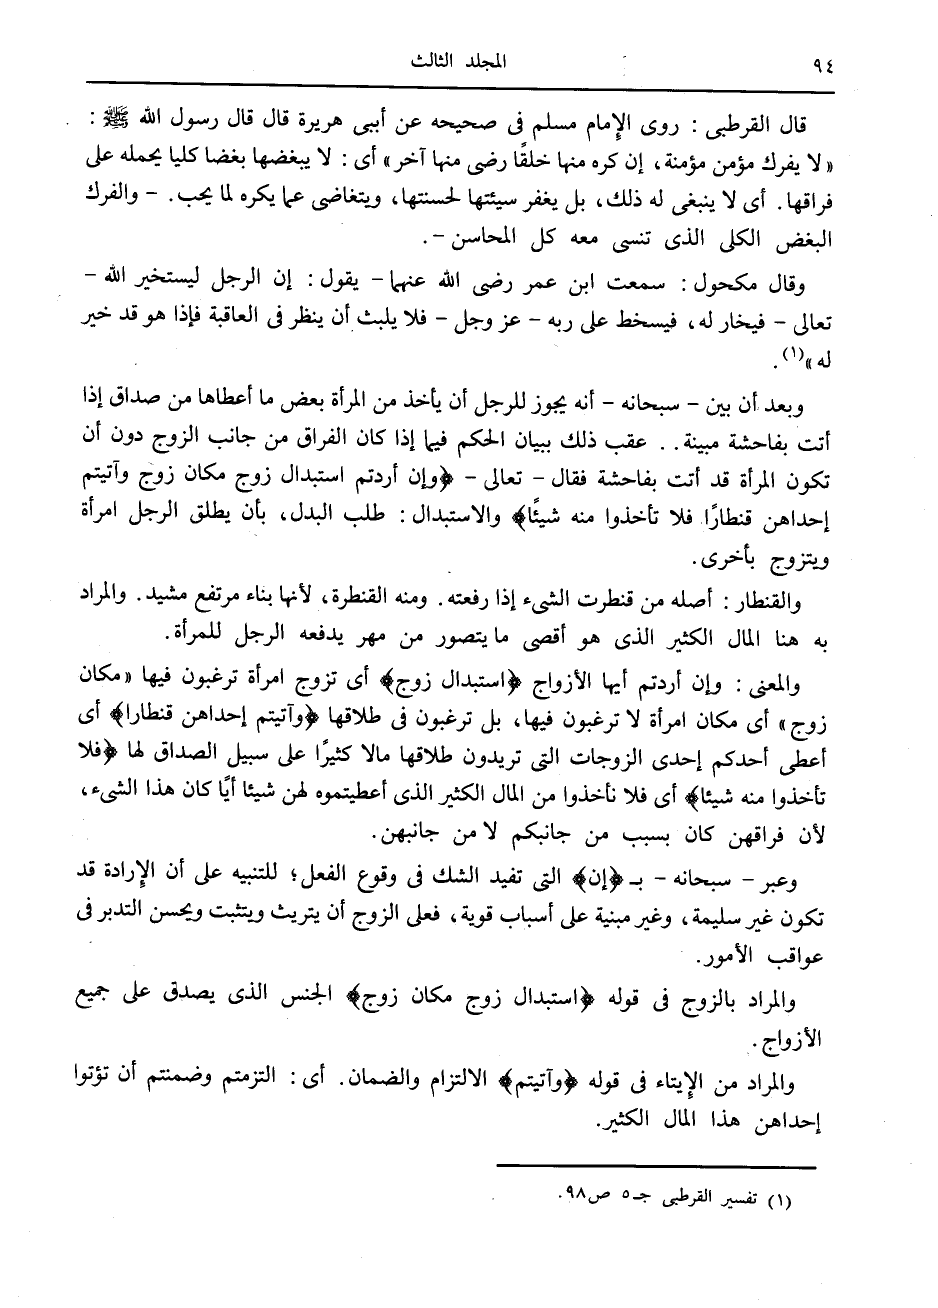 ٩٤
المجلد الثالث
قال القرطبى : روى الإمام مسلم فى صحيحه عن أبى هريرة قال قال رسول الله ﷺ :
«لا يفرك مؤمن مؤمنة، إن كره منها خلقًا رضى منها آخر» أى : لا يبغضها بغضا كليا يحمله على
فراقها. أى لا ينبغى له ذلك، بل يغفر سيئتها لحسنتها، ويتغاضى عما يكره لما يحب. - والفرك
البغض الكلى الذى تنسى معه كل المحاسن -.
وقال مكحول : سمعت ابن عمر رضى الله عنهما - يقول : إن الرجل ليستخير الله -
تعالى - فيخار له، فيسخط على ربه - عز وجل - فلا يلبث أن ينظر فى العاقبة فإذا هو قد خير
له»(١).
وبعد أن بين - سبحانه - أنه يجوز للرجل أن يأخذ من المرأة بعض ما أعطاها من صداق إذا
أتت بفاحشة مبينة.. عقب ذلك ببيان الحكم فيما إذا كان الفراق من جانب الزوج دون أن
تكون المرأة قد أتت بفاحشة فقال - تعالى - ﴿وإن أردتم استبدال زوج مكان زوج وآتيتم
إحداهن قنطارًا فلا تأخذوا منه شيئًا﴾ والاستبدال : طلب البدل، بأن يطلق الرجل امرأة
ويتزوج بأخرى.
والقنطار : أصله من قنطرت الشىء إذا رفعته. ومنه القنطرة، لأنها بناء مرتفع مشيد. والمراد
به هنا المال الكثير الذى هو أقصى ما يتصور من مهر يدفعه الرجل للمرأة.
والمعنى : وإن أردتم أيها الأزواج ﴿استبدال زوج﴾ أى تزوج امرأة ترغبون فيها «مكان
زوج» أى مكان امرأة لا ترغبون فيها، بل ترغبون فى طلاقها ﴿وآتيتم إحداهن قنطارا﴾ أى
أعطى أحدكم إحدى الزوجات التى تريدون طلاقها مالا كثيرًا على سبيل الصداق لها ﴿فلا
تأخذوا منه شيئا﴾ أى فلا نأخذوا من المال الكثير الذى أعطيتموه لهن شيئا أيًا كان هذا الشىء،
لأن فراقهن كان بسبب من جانبكم لا من جانبهن.
وعبر - سبحانه - بـ ﴿إن﴾ التى تفيد الشك فى وقوع الفعل؛ للتنبيه على أن الإرادة قد
تكون غير سليمة، وغير مبنية على أسباب قوية، فعلى الزوج أن يتريث ويتثبت ويحسن التدبر فى
عواقب الأمور.
والمراد بالزوج فى قوله ﴿استبدال زوج مكان زوج﴾ الجنس الذى يصدق على جميع
الأزواج.
والمراد من الإيتاء فى قوله ﴿وآتيتم﴾ الالتزام والضمان. أى : التزمتم وضمنتم أن تؤتوا
إحداهن هذا المال الكثير.
(١) تفسير القرطبى جـ٥ ص٩٨.